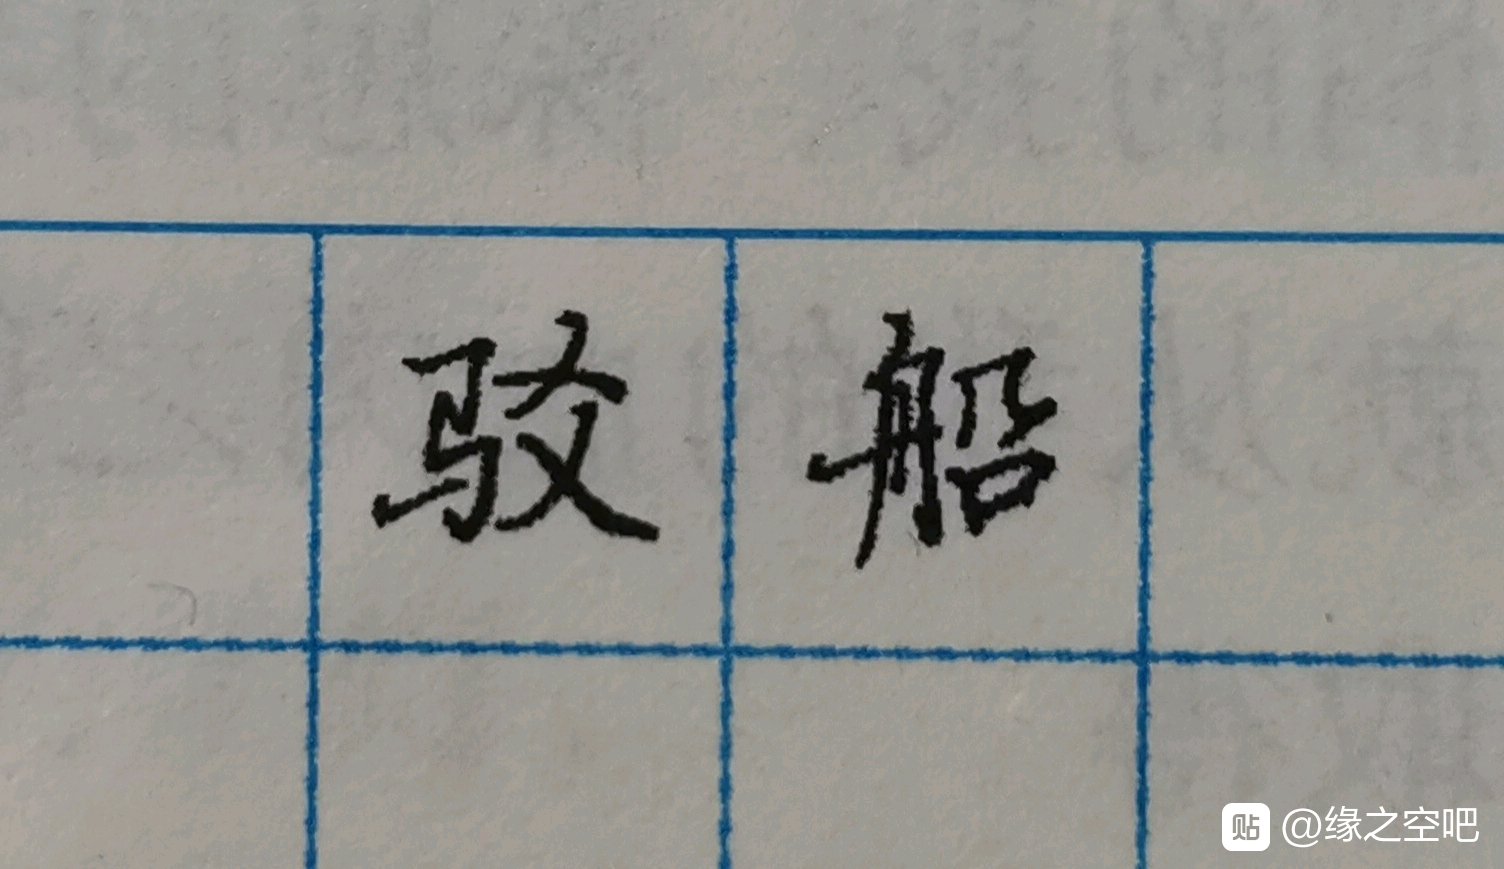 驳船
贴 @缘之空吧